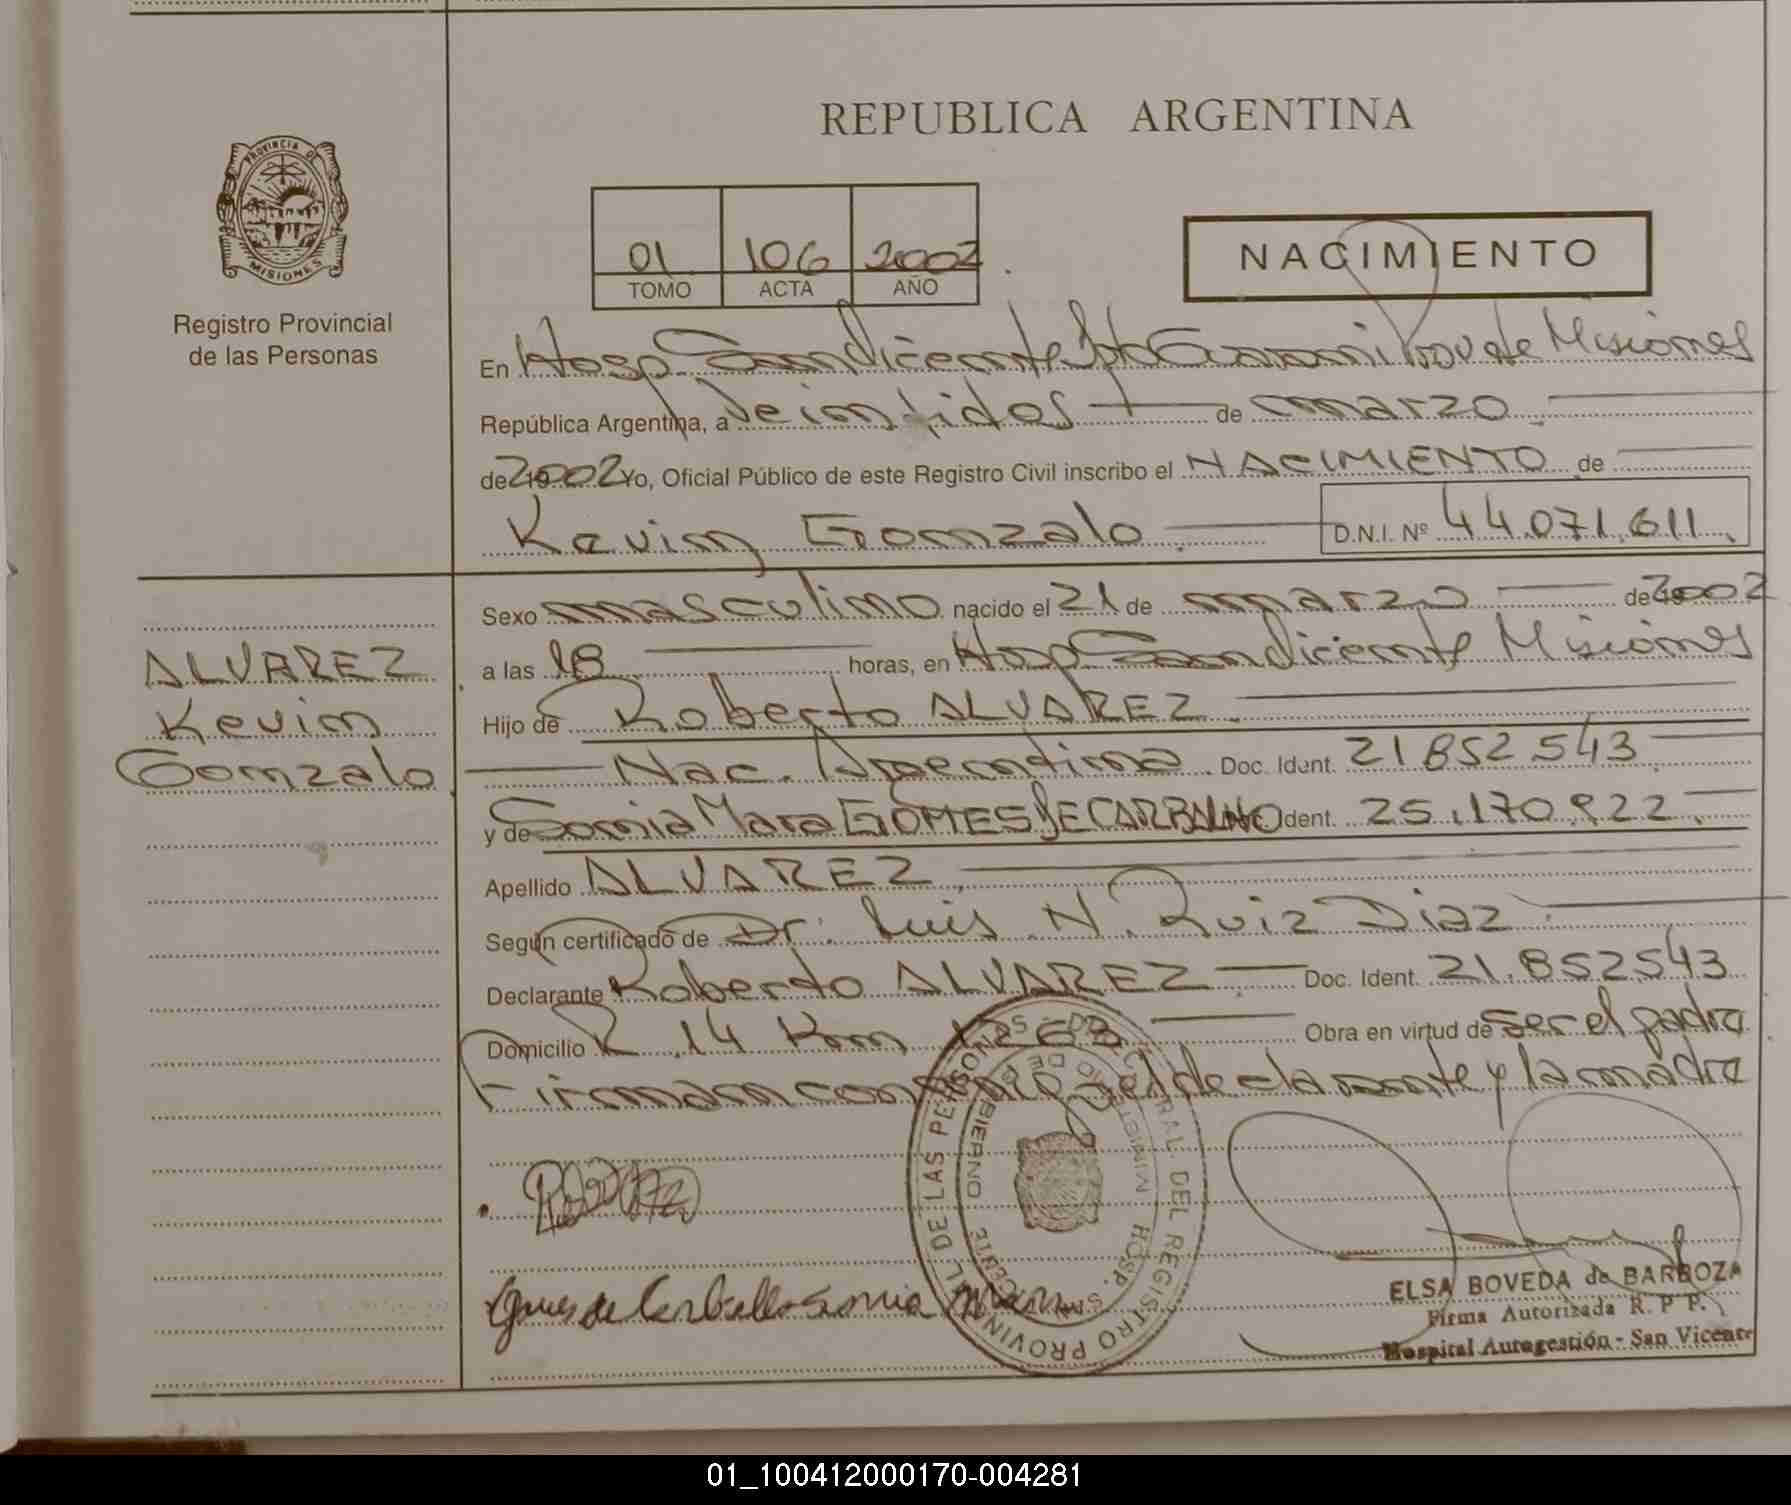 REPUBLICA ARGENTINA
PROVINCIA DE
MISIONES
Registro Provincial
de las Personas
01 106 2002
TOMO ACTA AÑO
NACIMIENTO
En Hosp San Vicente Dpto Guarani Prov de Misiones
República Argentina, a Veintidos de marzo
de 2002 Yo, Oficial Público de este Registro Civil inscribo el NACIMIENTO de
Kevin Gonzalo D.N.I. Nº 44.071.611
ALVAREZ
Kevin
Gonzalo
Sexo masculino nacido el 21 de marzo de 2002
a las 18 horas, en Hosp San Vicente Misiones
Hijo de Roberto ALVAREZ
Nac. Argentina Doc. Ident. 21852543
y de Sonia Mara GOMES DE CARBALHO Ident. 25.170.922
Apellido ALVAREZ
Según certificado de Dr. Luis N. Ruiz Diaz
Declarante Roberto ALVAREZ Doc. Ident. 21.852543
Domicilio R 14 Km 1263 Obra en virtud de ser el padre
Firman conmigo el declarante y la madre
REGISTRO PROVINCIAL DE LAS PERSONAS
MINISTERIO DE GOBIERNO
HOSP. SAN VICENTE
Gomes de Carballo Sonia Mara
ELSA BOVEDA de BARBOZA
Firma Autorizada R. P. P.
Hospital Autogestión - San Vicente
01_100412000170-004281